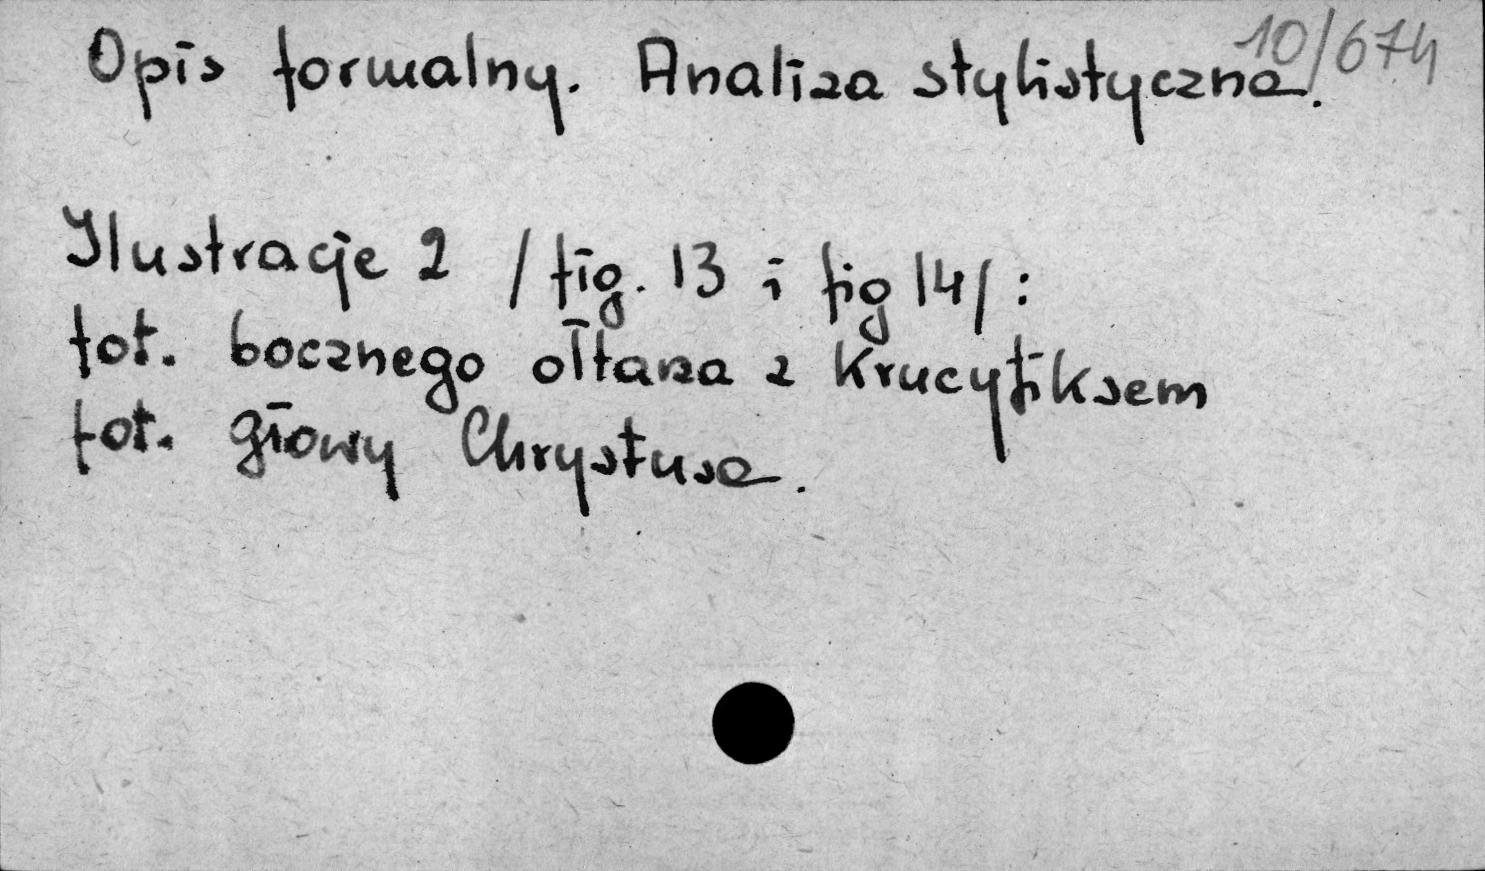 10/674
Opis formalny. Analiza stylistyczna.
Ilustracje 2 /fig. 13 i fig 14/:
fot. bocznego ołtarza z krucyfiksem
fot. głowy Chrystusa.